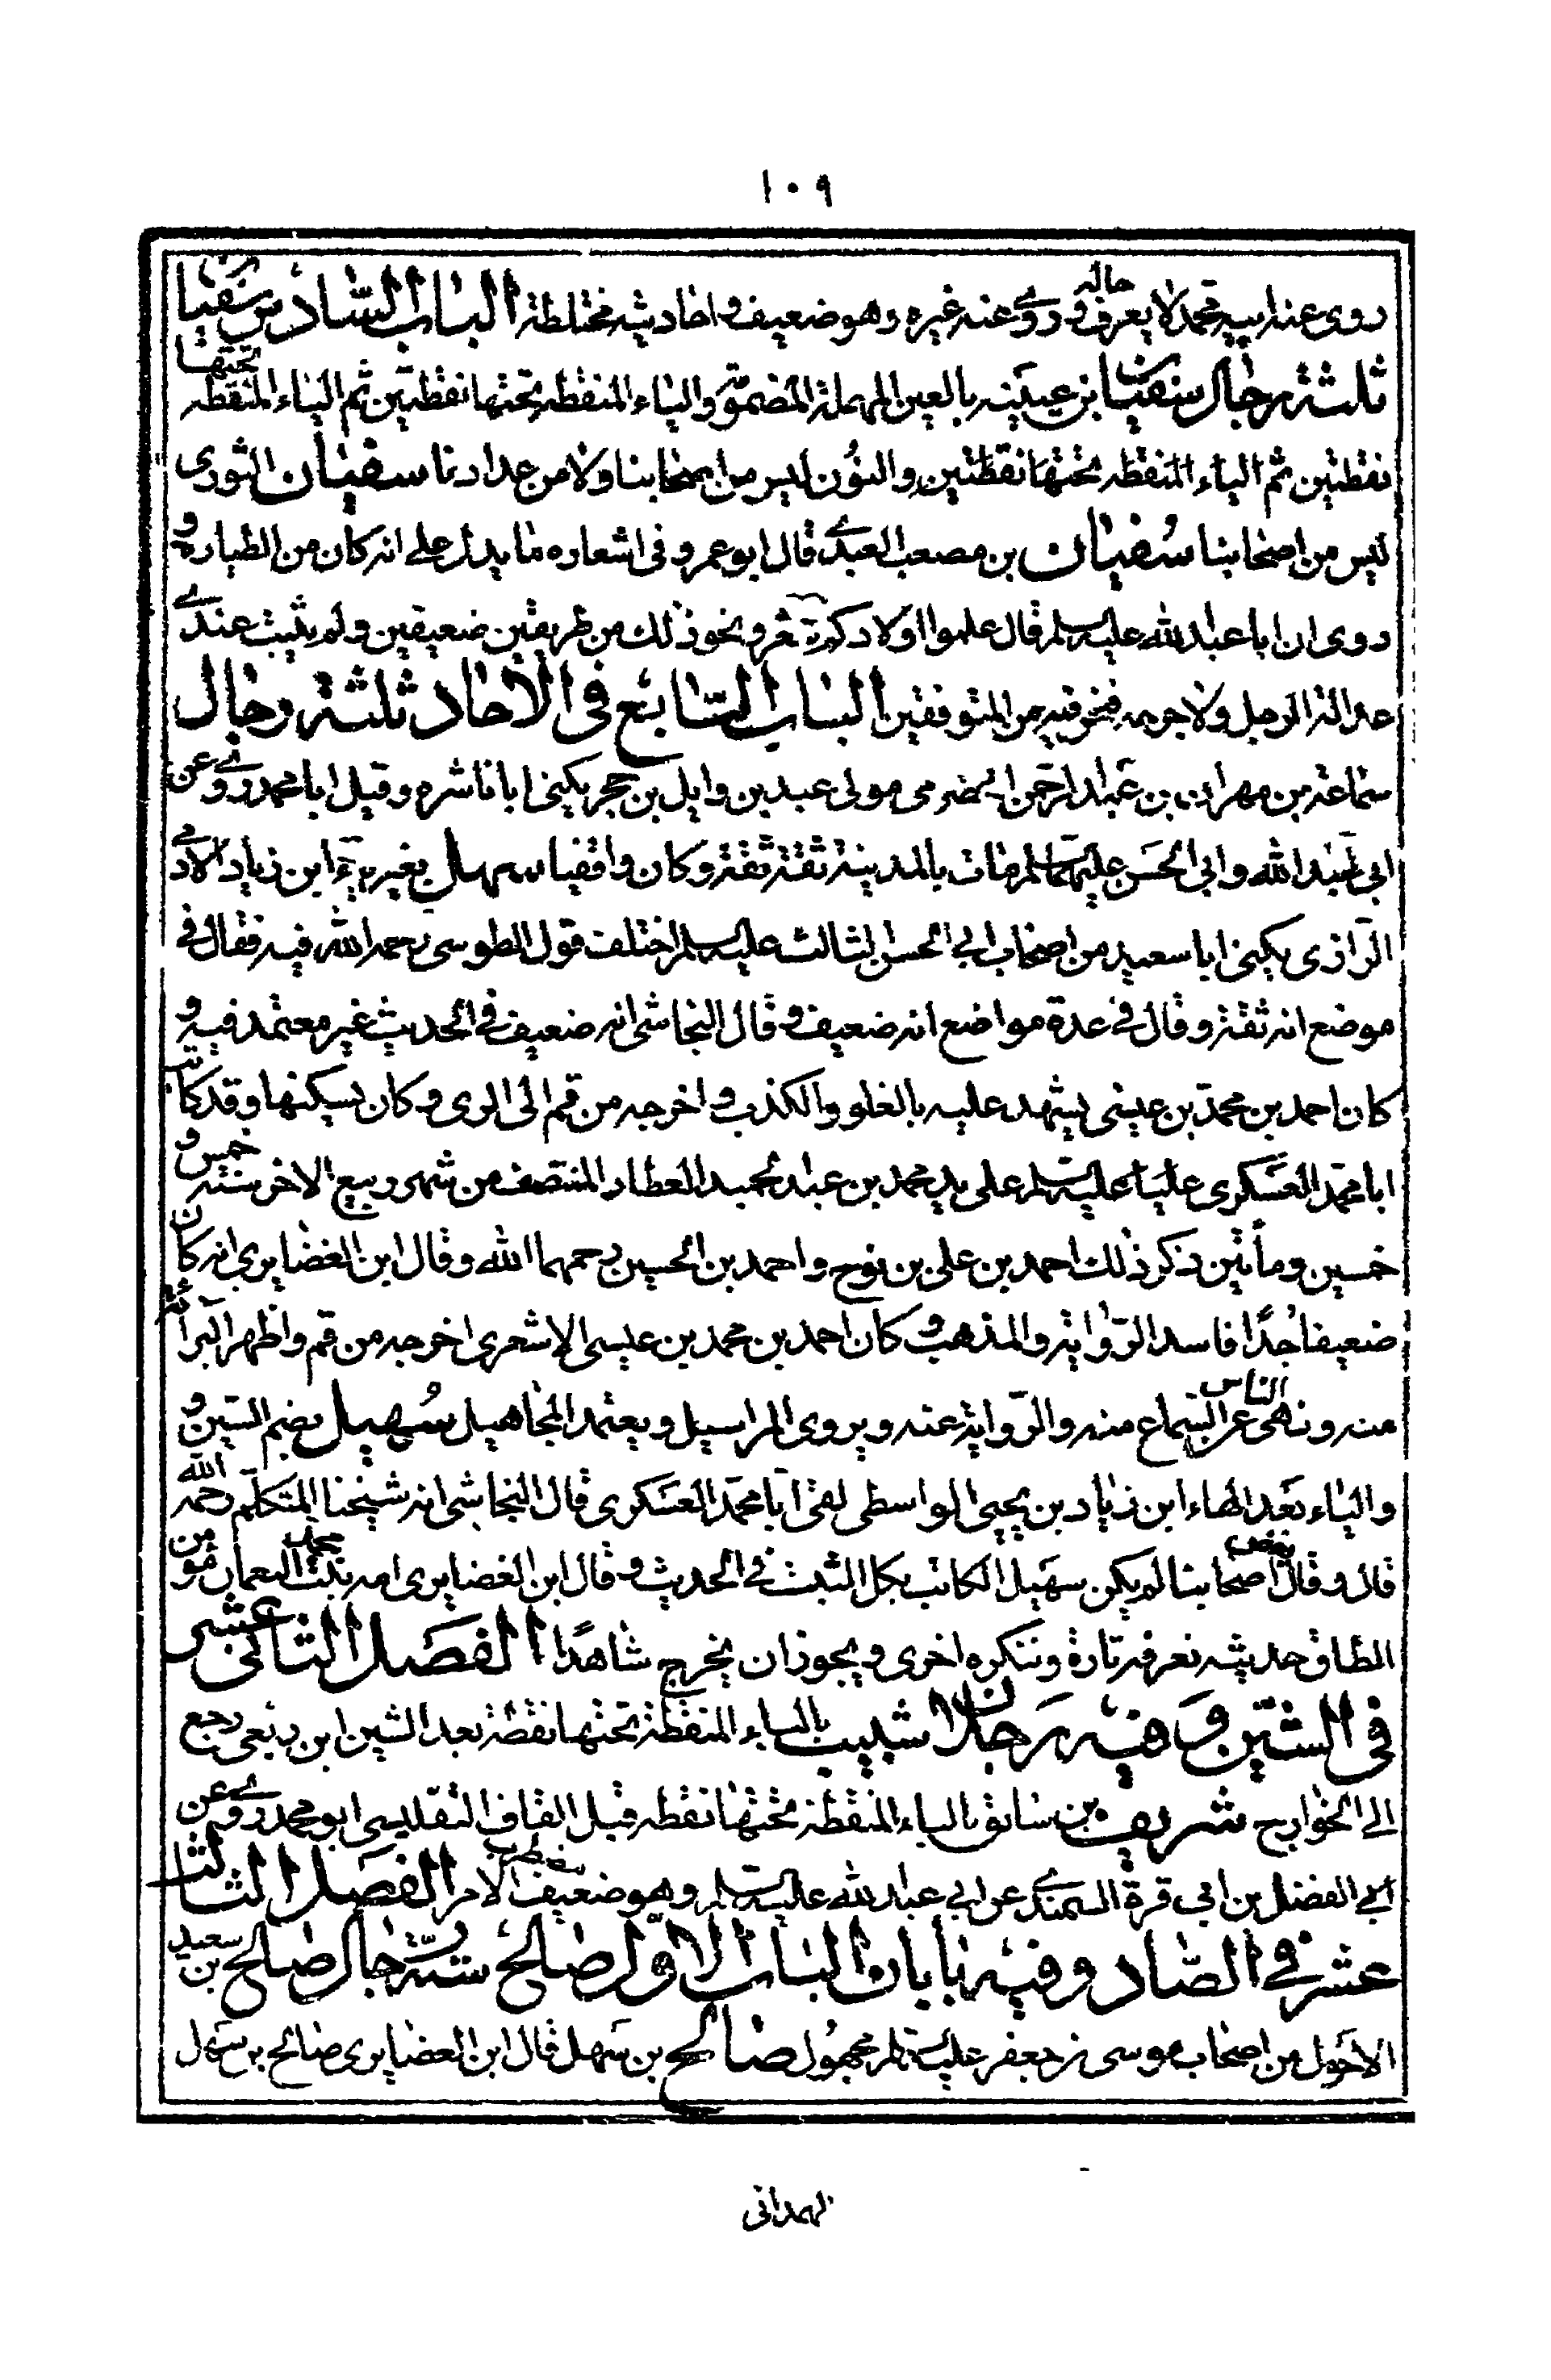 ١٠٩
روى عنه ابيه محمد لا يعرف حاله و روى عنه غيره وهو ضعيف و احاديثه مختلطة الباب السادس سفيان
ثلثة رجال سفيان بن عيينه بالعين المهملة المضمومة والياء المنقطه تحتها نقطتين ثم الياء المنقطه تحتها
نقطتين ثم الياء المنقطه تحتها نقطتين والنون ليس من اصحابنا ولا من عدادنا سفيان الثورى
ليس من اصحابنا سفيان بن مصعب العبدى قال ابو عمرو فى اشعاره ما يدل على انه كان من الطياره و
روى ان ابا عبد الله عليه السلم قال علموا اولادكم شعره ونحو ذلك من طريقين ضعيفين ولم يثبت عندى
عدالة الرجل ولا جرحه فنحن فيه من المتوقفين الباب السابع فى الاحاد ثلثة رجال
سماعة بن مهران بن عبد الرحمن الحضرمى مولى عبد بن وايل بن حجر يكنى ابا ناشره وقيل ابا محمد روى عن
ابى عبد الله وابى الحسن عليهما السلم مات بالمدينة ثقة ثقة وكان واقفيا سهل بغير ياء ابن زياد الادمى
الرازى يكنى ابا سعيد من اصحاب ابى الحسن الثالث عليه السلم اختلف قول الطوسى رحمه الله فيه فقال فى
موضع انه ثقة وقال فى عدة مواضع انه ضعيف و قال النجاشى انه ضعيف فى الحديث غير معتمد فيه و
كان احمد بن محمد بن عيسى يشهد عليه بالغلو والكذب و اخرجه من قم الى الرى و كان يسكنها وقد كاتب
ابا محمد العسكرى عليه السلم على يد محمد بن عبد الحميد العطار المنتصف من شهر ربيع الاخر سنة خمس و
خمسين ومأتين ذكر ذلك احمد بن على بن نوح واحمد بن الحسين رحمهما الله وقال ابن الغضايرى انه كان
ضعيفا جدًا فاسد الرواية والمذهب و كان احمد بن محمد بن عيسى الاشعرى اخرجه من قم واظهر البرائة
منه ونهى الناس عن السماع منه والرواية عنه ويروى المراسيل ويعتمد المجاهيل سهيل بضم السين و
والياء بعد الهاء ابن زياد بن يحيى الواسطى لقى ابا محمد العسكرى قال النجاشى انه شيخنا المتكلم رحمه الله
قال وقال بعض اصحابنا لم يكن سهيل الكاتب بكل الثبت فى الحديث و قال ابن الغضايرى امه بنت محمد بن النعمان مومن
الطاق حديثه نعرفه تارة وننكره اخرى و يجوز ان يخرج شاهدًا الفصل الثانى عشر
فى الشين و فيه رجلان شبيب بالباء المنقطة تحتها نقطة بعد الشين ابن ربعى رجع
الى الخوارج شريف بن سابق بالباء المنقطة تحتها نقطه قبل القاف التفليسى ابو محمد روى عن
ابى الفضل بن ابى قرة السمندى عن ابى عبد الله عليه السلم وهو ضعيف مضطرب الامر الفصل الثالث
عشر فى الصاد و فيه بابان الباب الاول صالح ستة رجال صالح بن سعيد
الاحول من اصحاب موسى بن جعفر عليه السلم مجهول صالح بن سهل قال ابن الغضايرى صالح بن سهل
الهمدانى